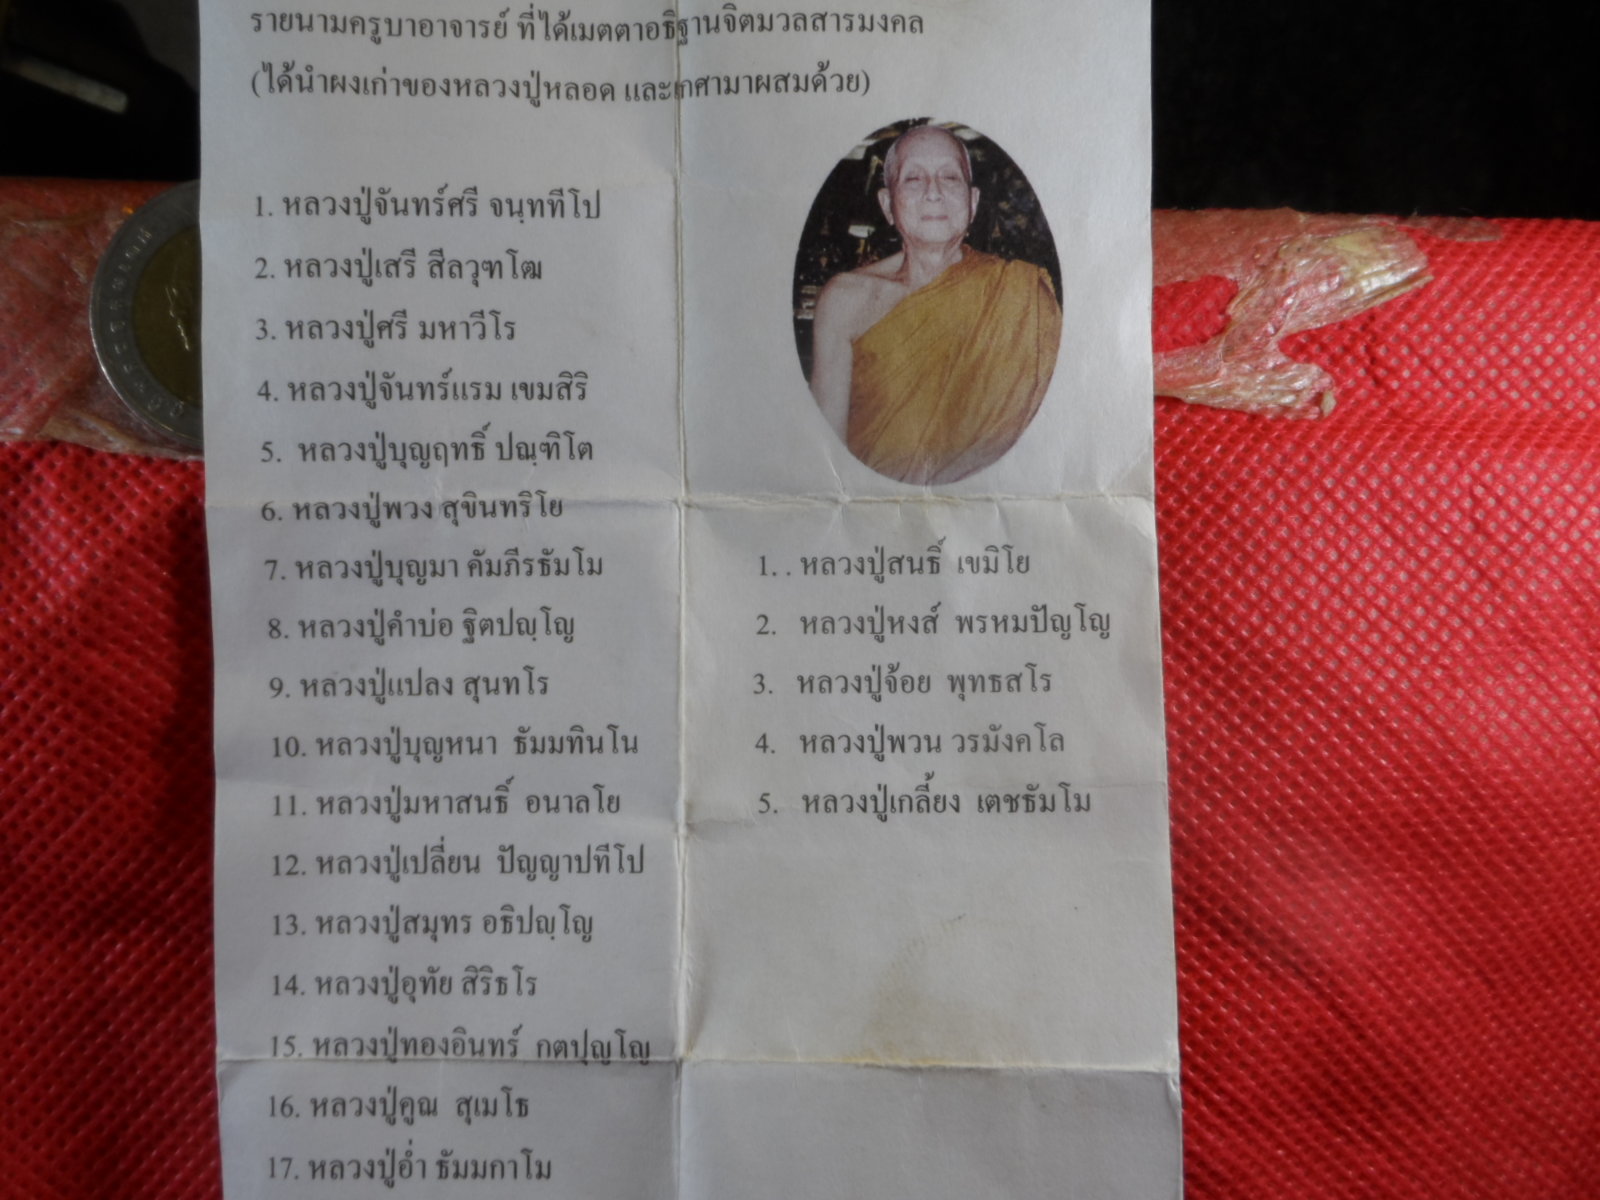 รายนามครูบาอาจารย์ ที่ได้เมตตาอธิฐานจิตมวลสารมงคล
(ได้นำผงเก่าของหลวงปู่หลอด และเกศามาผสมด้วย)
1. หลวงปู่จันทร์ศรี จนฺททีโป
2. หลวงปู่เสรี สีลวุฑโฒ
3. หลวงปู่ศรี มหาวีโร
4. หลวงปู่จันทร์แรม เขมสิริ
5. หลวงปู่บุญฤทธิ์ ปณฺฑิโต
6. หลวงปู่พวง สุขินทริโย
7. หลวงปู่บุญมา คัมภีรธัมโม
8. หลวงปู่คำบ่อ ฐิตปญฺโญ
9. หลวงปู่แปลง สุนทโร
10. หลวงปู่บุญหนา ธัมมทินโน
11. หลวงปู่มหาสนธิ์ อนาลโย
12. หลวงปู่เปลี่ยน ปัญญาปทีโป
13. หลวงปู่สมุทร อธิปญฺโญ
14. หลวงปู่อุทัย สิริธโร
15. หลวงปู่ทองอินทร์ กตปุญโญ
16. หลวงปู่คูณ สุเมโธ
17. หลวงปู่อ่ำ ธัมมกาโม
1. . หลวงปู่สนธิ์ เขมิโย
2. หลวงปู่หงส์ พรหมปัญโญ
3. หลวงปู่จ้อย พุทธสโร
4. หลวงปู่พวน วรมังคโล
5. หลวงปู่เกลี้ยง เตชธัมโม